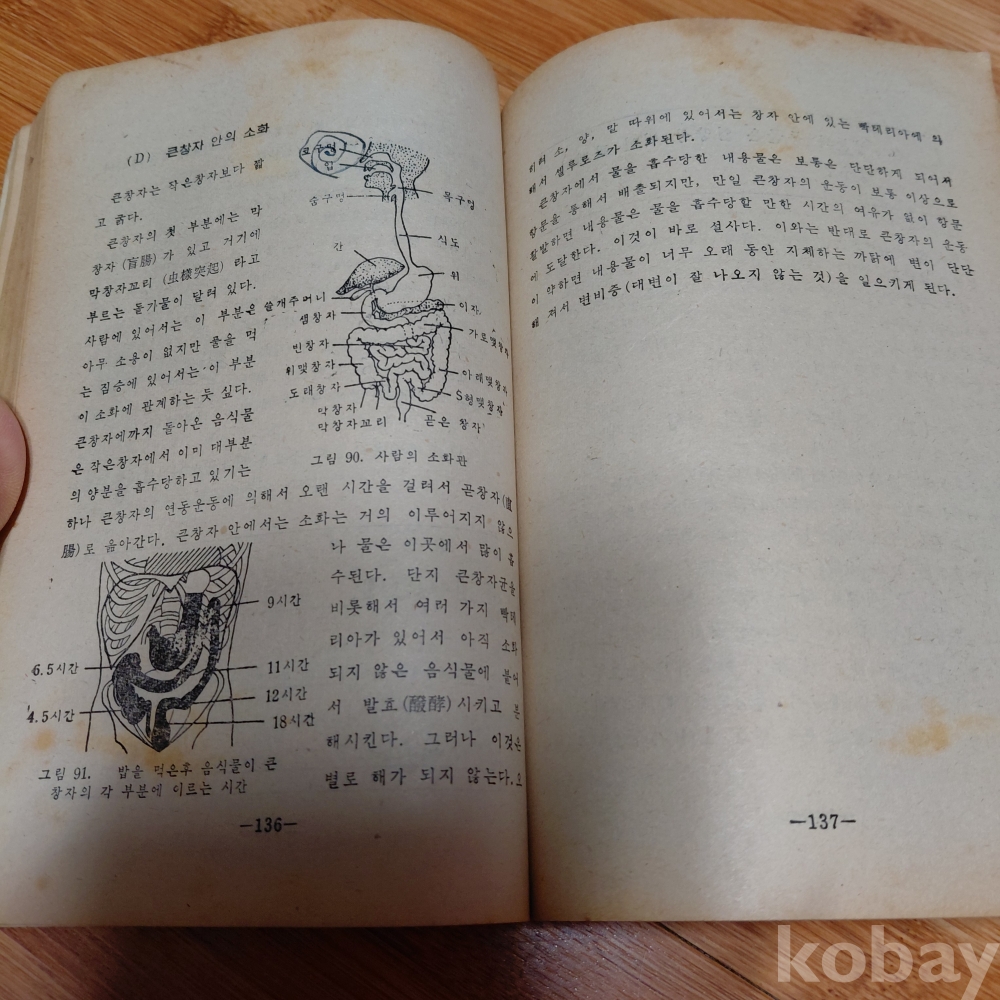 (D) 큰창자 안의 소화
큰창자는 작은창자보다 짧
고 굵다.
큰창자의 첫 부분에는 막
창자(盲腸)가 있고 거기에
막창자꼬리(虫樣突起)라고
부르는 돌기물이 달려 있다.
사람에 있어서는 이 부분은
아무 소용이 없지만 풀을 먹
는 짐승에 있어서는 이 부분
이 소화에 관계하는 듯 싶다.
큰창자에까지 돌아온 음식물
은 작은창자에서 이미 대부분
의 양분을 흡수당하고 있기는
하나 큰창자의 연동운동에 의해서 오랜 시간을 걸려서 곧창자(直
腸)로 음아간다. 큰창자 안에서는 소화는 거의 이루어지지 않으
나 물은 이곳에서 많이 흡
수된다. 단지 큰창자균을
비롯해서 여러 가지 빡테
리아가 있어서 아직 소화
되지 않은 음식물에 붙어
서 발효(醱酵)시키고 분
해시킨다. 그러나 이것은
별로 해가 되지 않는다.오
코구멍
입
숨구멍
목구멍
간
식도
위
쓸개주머니
이자
샘창자
가로맺창자
빈창자
위맺창자
아래맺창자
도래창자
S형맺창자
막창자
막창자꼬리
곧은 창자
그림 90. 사람의 소화관
9시간
6.5시간
11시간
12시간
4.5시간
18시간
그림 91. 밥을 먹은후 음식물이 큰
창자의 각 부분에 이르는 시간
—136—
히려 소, 양, 말 따위에 있어서는 창자 안에 있는 빡테리아에 의
해서 셀루로즈가 소화된다.
큰창자에서 물을 흡수당한 내용물은 보통은 단단하게 되어서
항문을 통해서 배출되지만, 만일 큰창자의 운동이 보통 이상으로
활발하면 내용물은 물을 흡수당할 만한 시간의 여유가 없이 항문
에 도달한다. 이것이 바로 설사다. 이와는 반대로 큰창자의 운동
이 약하면 내용물이 너무 오래 동안 지체하는 까닭에 변이 단단
해 져서 변비증(대변이 잘 나오지 않는 것)을 일으키게 된다.
—137—
kobay